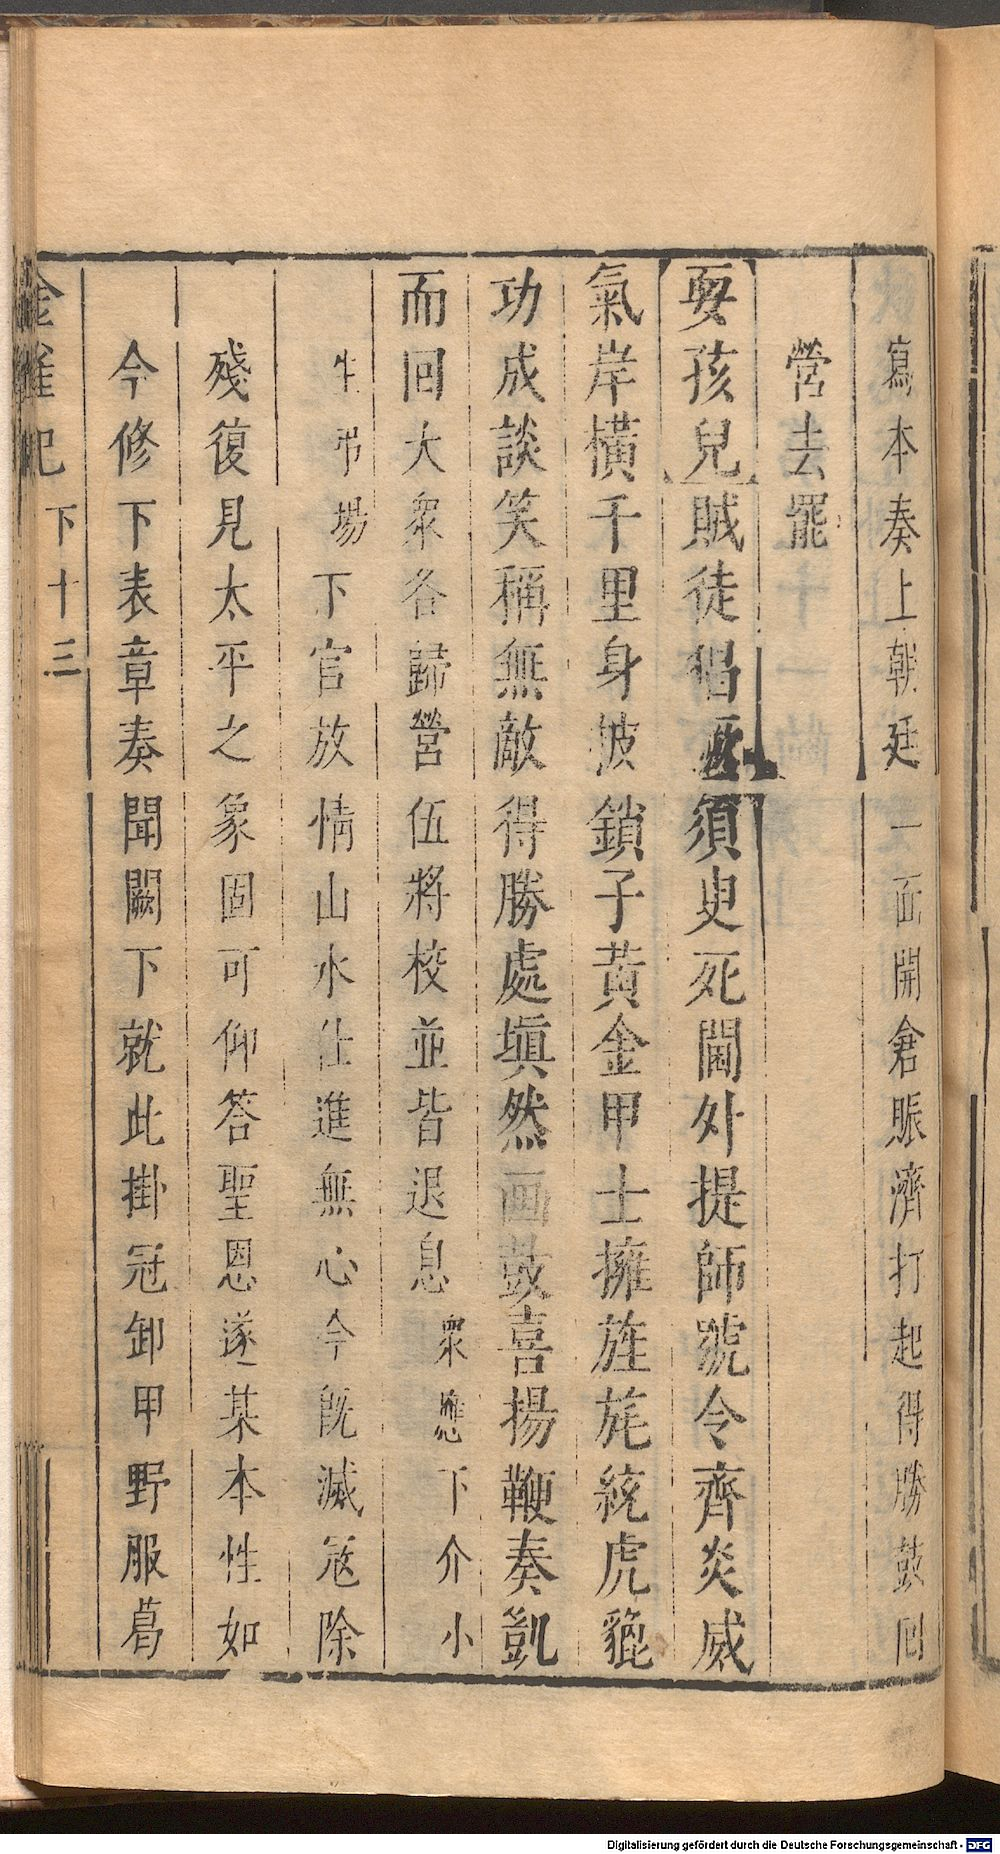 寫本奏上朝廷一面開倉賑濟打起得勝鼓回
營去罷
耍孩兒賊徒猖厥須臾死閫外提師號令齊炎威
氣岸橫千里身披鎖子黃金甲士擁旌旄統虎貔
功成談笑稱無敵得勝處塡然画鼓喜揚鞭奏凱
而回大衆各歸營伍將校並皆退息衆應下介小
生弔場下官放情山水仕進無心今旣滅寇除
殘復見太平之象固可仰答聖恩遂某本性如
今修下表章奏聞闕下就此掛冠卸甲野服葛
金雀記 下 十三
Digitalisierung gefördert durch die Deutsche Forschungsgemeinschaft - DFG